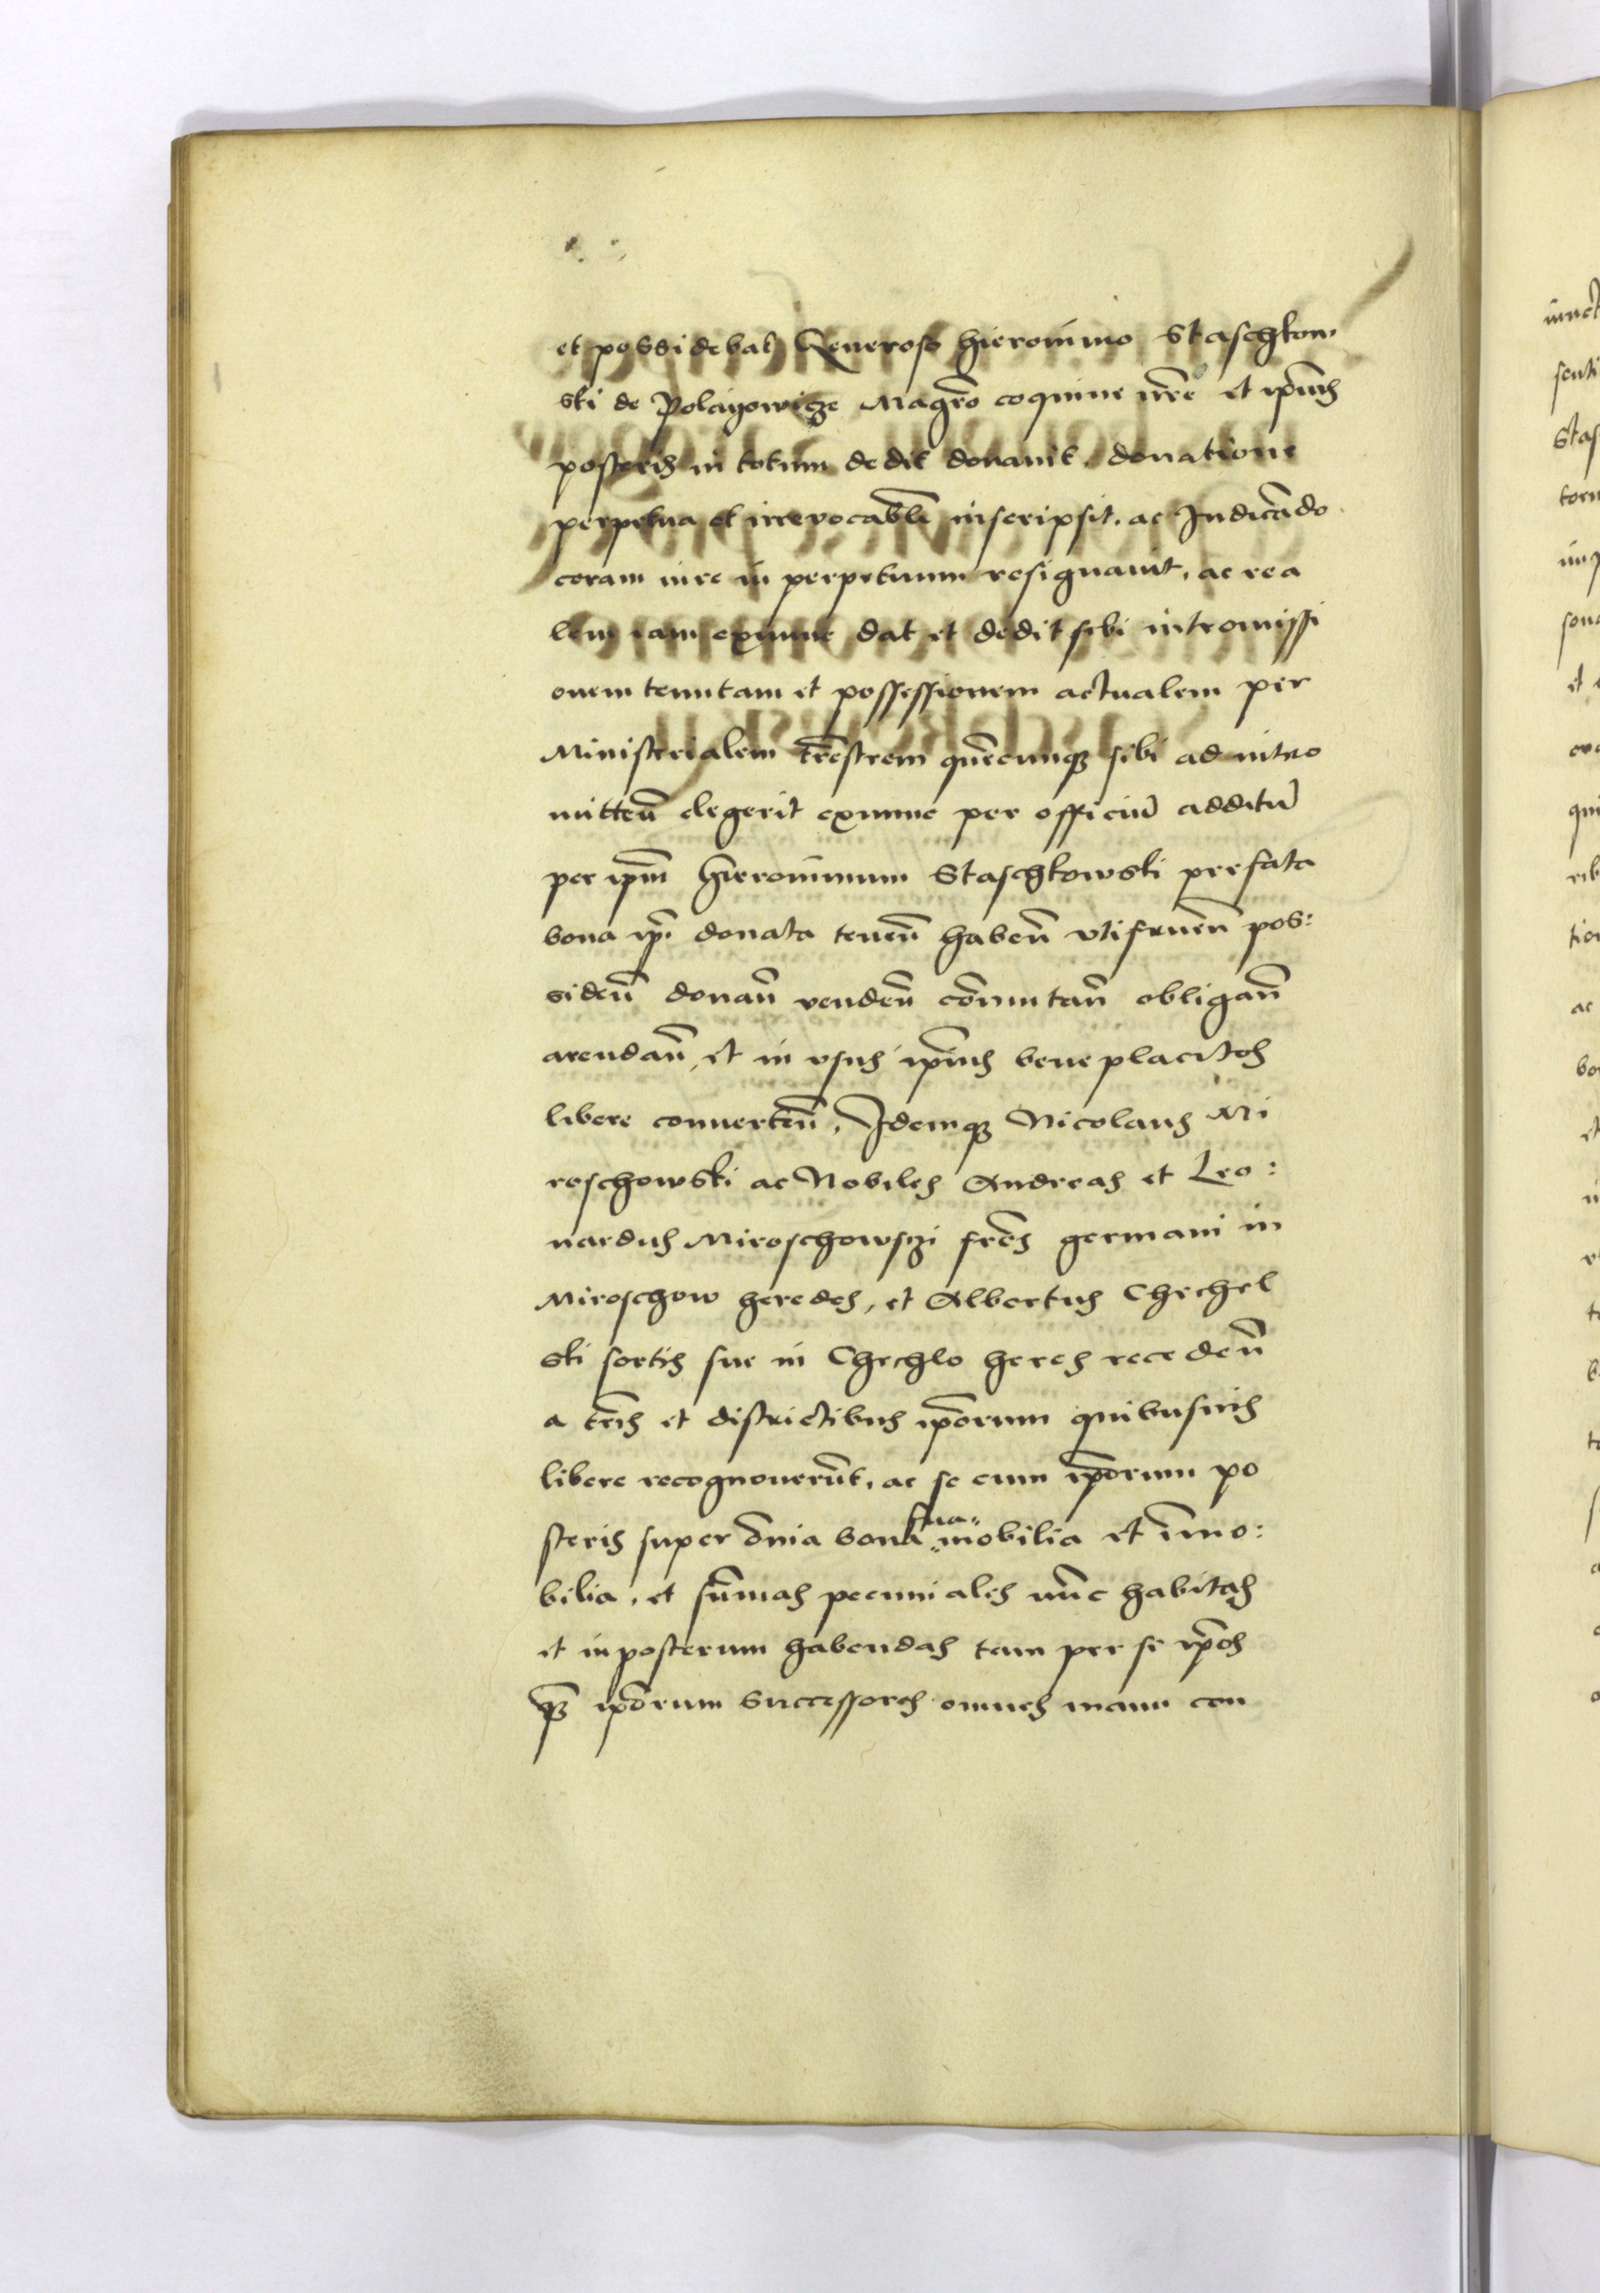 et possidebat Generoso Hieronimo Staschkow
ski de Polayowicze Magrō coquine nrē et ipīus
posteris in totum dedit donauit donatione
perpetua et irreuocabli inscripsit. ac Iudicādo
coram iure in perpetuum resignauit, ac rea
lem iam exnunc dat et dedit sibi intromissi
onem tenutam et possessionem actualem per
Ministerialem trēstrem quēcunqz sibi ad intro
mitteñ elegerit exnunc per officiū additū
per ipm̄ Hieronimum Staschkowski prefata
bona ip̄i donata teneñ habeñ vtifrueñ pos:
sideñ donañ vendeñ cōmutañ obligañ
arendañ, et in vsus ipīus bene placitos
libere conuerteñ, Idemqz Nicolaus Mi
roschowski ac Nobiles Andreas et Leo:
nardus Miroschowsczi frēs germani in
Miroschow heredes, et Albertus Chechel
ski sortis sue in Chechlo heres recedeñ
a trīs et districtibus ipōrum quibusuis
libere recognouerūt, ac se cum ipōrum po
steris super ōnia bona sua mobilia et īmo:
bilia, et sūmas pecuniales nūc habitas
et inposterum habendas tam per se ipōs
qz ipōrum successores omnes manu con